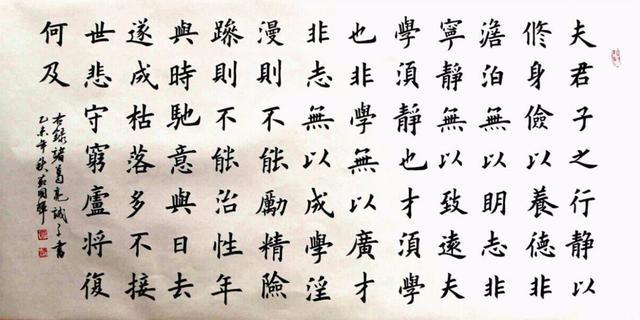 夫君子之行静以
修身儉以養德非
澹泊無以明志非
寧靜無以致遠夫
學須靜也才須學
也非學無以廣才
非志無以成學淫
漫則不能勵精險
躁則不能治性年
與時馳意與日去
遂成枯落多不接
世悲守窮廬將復
何及
右錄諸葛亮誡子書
乙未年秋